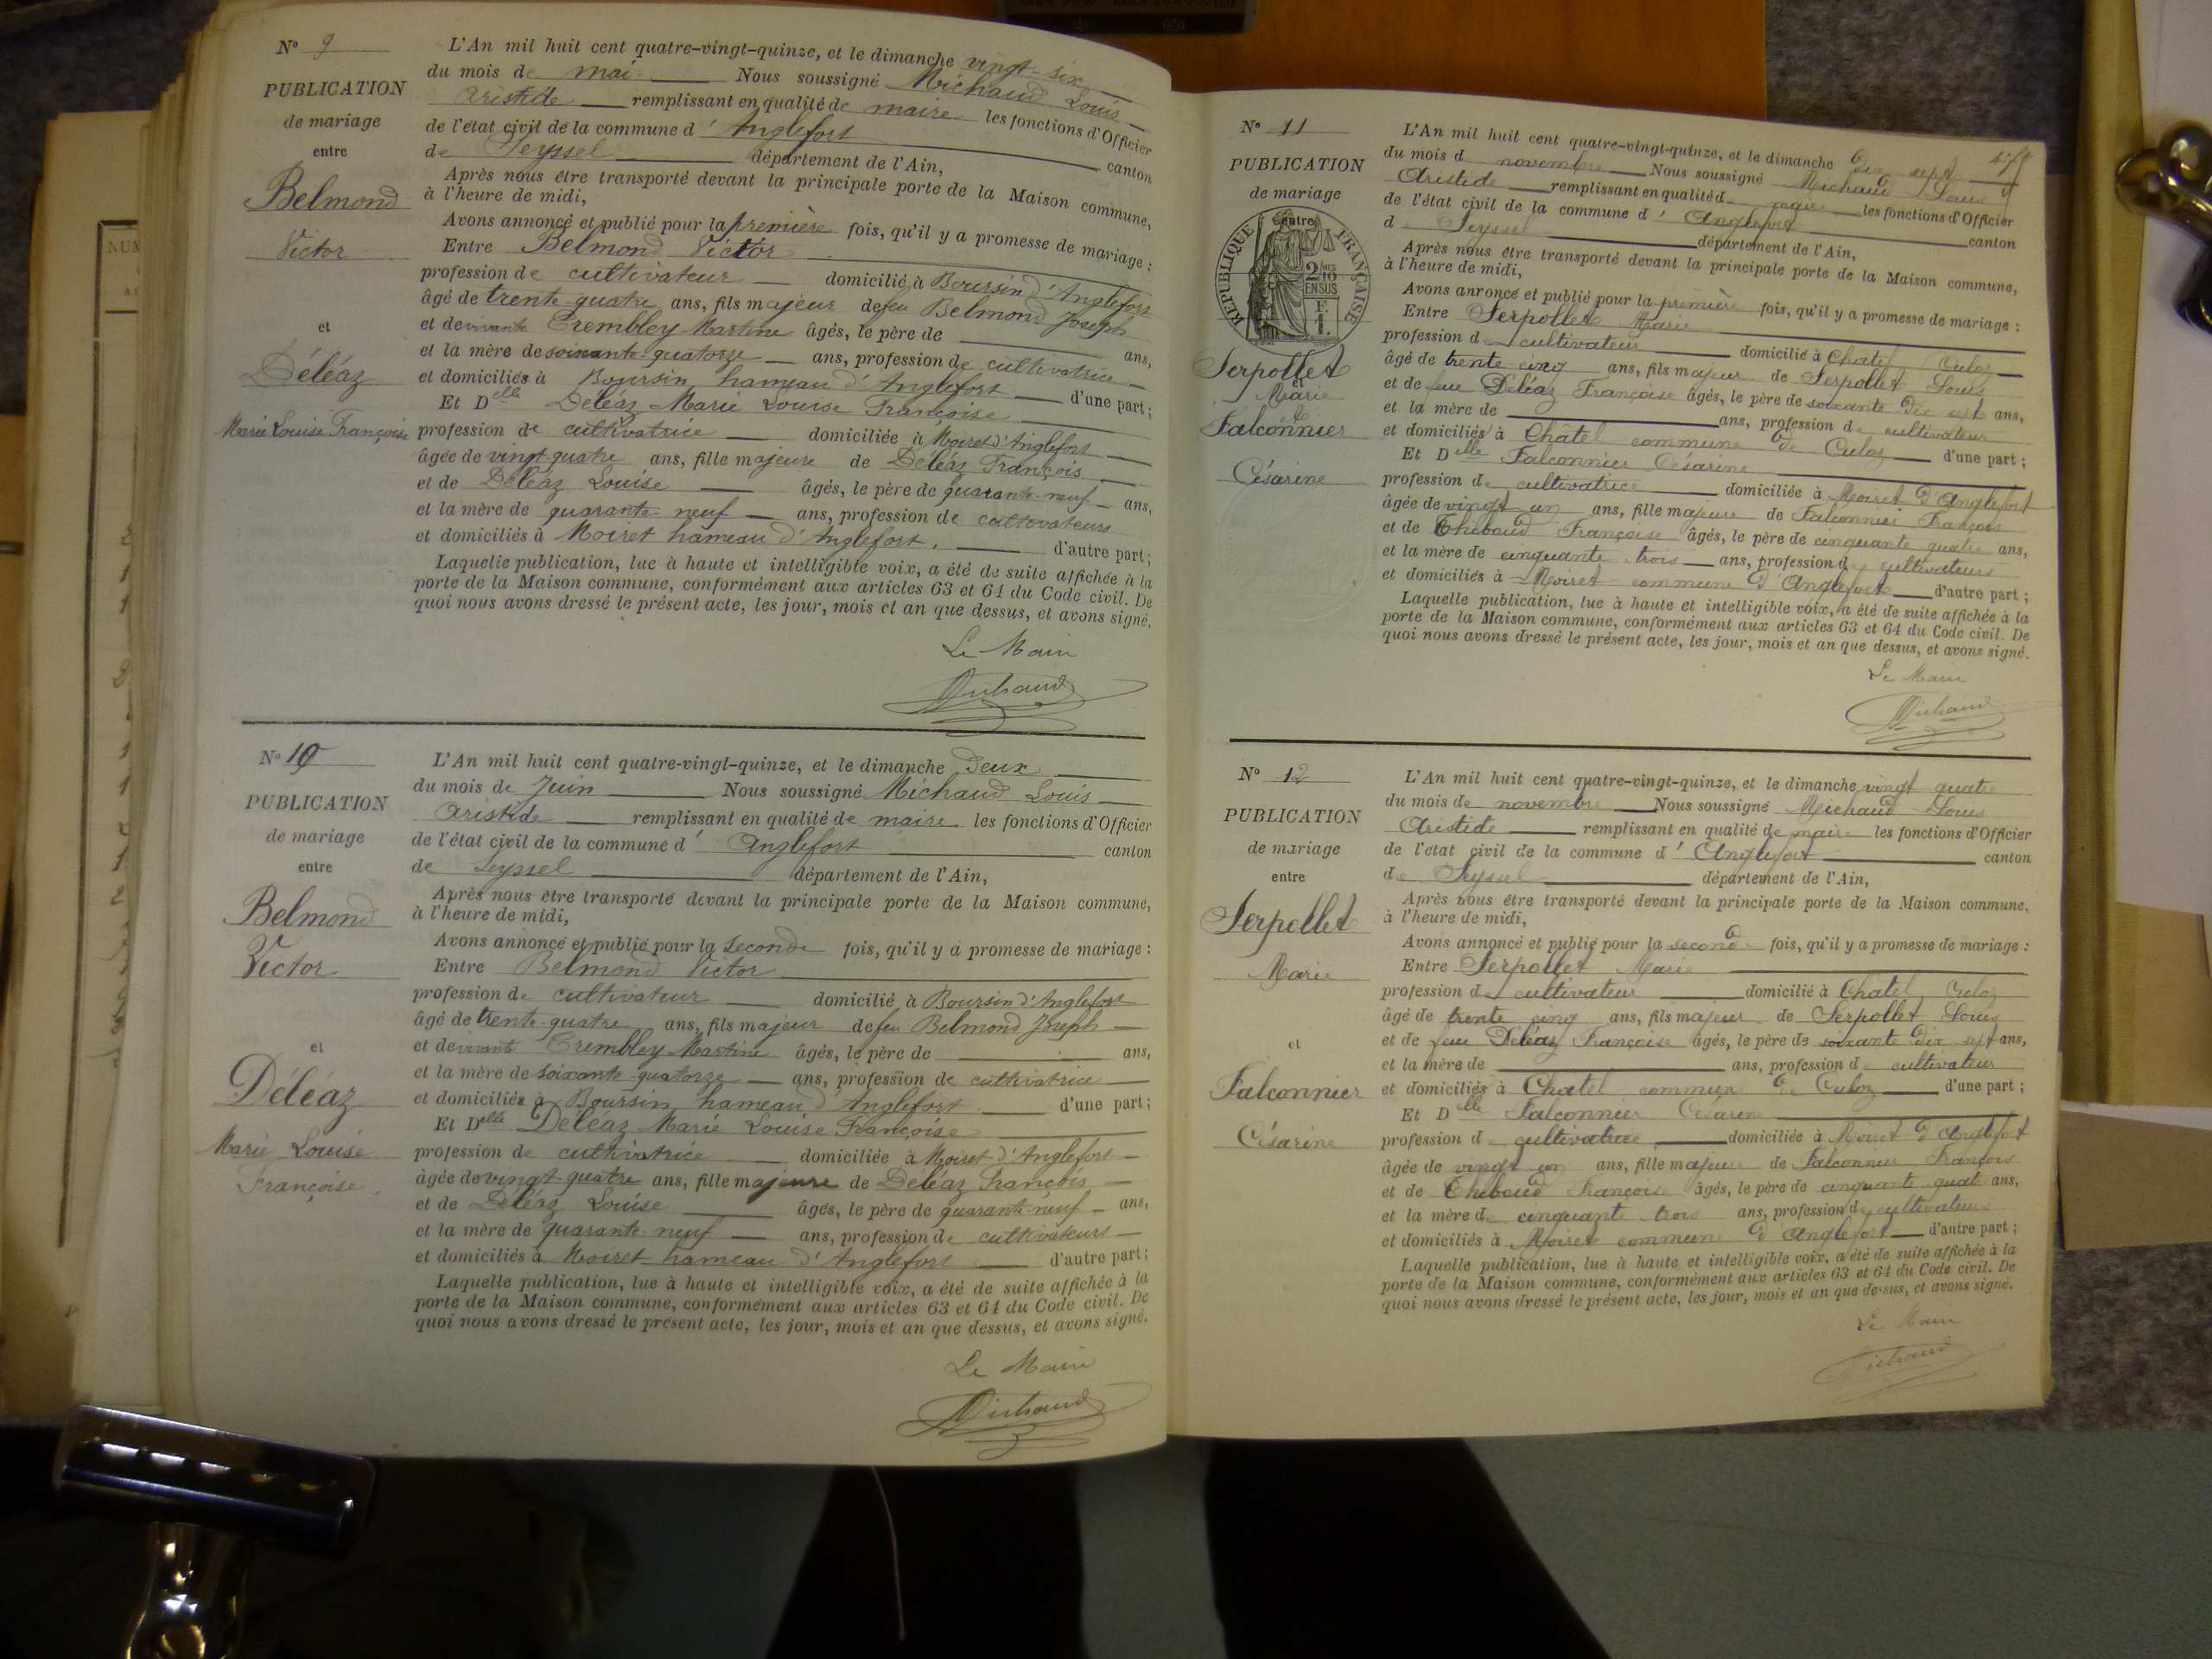 Nº 9
PUBLICATION
de mariage
entre
Belmond
Victor
et
Déléaz
Marie Louise Françoise
L'An mil huit cent quatre-vingt-quinze, et le dimanche vingt-six
du mois de mai Nous soussigné Michaud Louis
Aristide remplissant en qualité de maire les fonctions d'Officier
de l'état civil de la commune d'Anglefort canton
de Seyssel département de l'Ain,
Après nous être transporté devant la principale porte de la Maison commune,
à l'heure de midi,
Avons annoncé et publié pour la première fois, qu'il y a promesse de mariage :
Entre Belmond Victor
profession de cultivateur domicilié à Boursin d'Anglefort
âgé de trente-quatre ans, fils majeur de feu Belmond Joseph
et de vivante Trembley Martine âgés, le père de ans,
et la mère de soixante-quatorze ans, profession de cultivatrice
et domiciliés à Boursin hameau d'Anglefort d'une part;
Et Delle Déléaz Marie Louise Françoise
profession de cultivatrice domiciliée à Moiret d'Anglefort
âgée de vingt-quatre ans, fille majeure de Déléaz François
et de Déléaz Louise âgés, le père de quarante-neuf ans,
et la mère de quarante-neuf ans, profession de cultivateurs
et domiciliés à Moiret hameau d'Anglefort. d'autre part;
Laquelle publication, lue à haute et intelligible voix, a été de suite affichée à la
porte de la Maison commune, conformément aux articles 63 et 64 du Code civil. De
quoi nous avons dressé le présent acte, les jour, mois et an que dessus, et avons signé.
Le Maire
Michaud
Nº 10
PUBLICATION
de mariage
entre
Belmond
Victor
et
Déléaz
Marie Louise
Françoise.
L'An mil huit cent quatre-vingt-quinze, et le dimanche deux
du mois de Juin Nous soussigné Michaud Louis
Aristide remplissant en qualité de maire les fonctions d'Officier
de l'état civil de la commune d'Anglefort canton
de Seyssel département de l'Ain,
Après nous être transporté devant la principale porte de la Maison commune,
à l'heure de midi,
Avons annoncé et publié pour la seconde fois, qu'il y a promesse de mariage :
Entre Belmond Victor
profession de cultivateur domicilié à Boursin d'Anglefort
âgé de trente-quatre ans, fils majeur de feu Belmond Joseph
et de vivante Trembley Martine âgés, le père de ans,
et la mère de soixante-quatorze ans, profession de cultivatrice
et domiciliés à Boursin hameau d'Anglefort d'une part;
Et Delle Déléaz Marie Louise Françoise
profession de cultivatrice domiciliée à Moiret d'Anglefort
âgée de vingt-quatre ans, fille majeure de Déléaz François
et de Déléaz Louise âgés, le père de quarante-neuf ans,
et la mère de quarante-neuf ans, profession de cultivateurs
et domiciliés à Moiret hameau d'Anglefort d'autre part;
Laquelle publication, lue à haute et intelligible voix, a été de suite affichée à la
porte de la Maison commune, conformément aux articles 63 et 64 du Code civil. De
quoi nous avons dressé le présent acte, les jour, mois et an que dessus, et avons signé.
Le Maire
Michaud
Nº 11
PUBLICATION
de mariage
entre
RÉPUBLIQUE FRANÇAISE
2/10
EN SUS
F.
1.
Serpollet
et
Marie
de
Falconnier
Césarine
L'An mil huit cent quatre-vingt-quinze, et le dimanche dix sept
du mois de novembre Nous soussigné Michaud Louis
Aristide remplissant en qualité de maire les fonctions d'Officier
de l'état civil de la commune d'Anglefort canton
de Seyssel département de l'Ain,
Après nous être transporté devant la principale porte de la Maison commune,
à l'heure de midi,
Avons annoncé et publié pour la première fois, qu'il y a promesse de mariage :
Entre Serpollet Marie
profession de cultivateur domicilié à Châtel Culoz
âgé de trente cinq ans, fils majeur de Serpollet Louis
et de feue Deléaz Françoise âgés, le père de soixante dix sept ans,
et la mère de ans, profession de cultivateur
et domiciliés à Châtel commune de Culoz d'une part;
Et Delle Falconnier Césarine
profession de cultivatrice domiciliée à Moiret d'Anglefort
âgée de vingt un ans, fille majeure de Falconnier François
et de Thibaud Françoise âgés, le père de cinquante quatre ans,
et la mère de cinquante trois ans, profession de cultivateurs
et domiciliés à Moiret commune d'Anglefort d'autre part;
Laquelle publication, lue à haute et intelligible voix, a été de suite affichée à la
porte de la Maison commune, conformément aux articles 63 et 64 du Code civil. De
quoi nous avons dressé le présent acte, les jour, mois et an que dessus, et avons signé.
Le Maire
Michaud
Nº 12
PUBLICATION
de mariage
entre
Serpollet
Marie
et
Falconnier
Césarine
L'An mil huit cent quatre-vingt-quinze, et le dimanche vingt quatre
du mois de novembre Nous soussigné Michaud Louis
Aristide remplissant en qualité de maire les fonctions d'Officier
de l'état civil de la commune d'Anglefort canton
de Seyssel département de l'Ain,
Après nous être transporté devant la principale porte de la Maison commune,
à l'heure de midi,
Avons annoncé et publié pour la seconde fois, qu'il y a promesse de mariage :
Entre Serpollet Marie
profession de cultivateur domicilié à Chatel Culoz
âgé de trente cinq ans, fils majeur de Serpollet Louis
et de feue Deléaz Françoise âgés, le père de soixante dix sept ans,
et la mère de ans, profession de cultivateur
et domiciliés à Chatel commune de Culoz d'une part;
Et Delle Falconnier Césarine
profession de cultivatrice domiciliée à Moiret d'Anglefort
âgée de vingt un ans, fille majeure de Falconnier François
et de Thibaud Françoise âgés, le père de cinquante quatre ans,
et la mère de cinquante trois ans, profession de cultivateurs
et domiciliés à Moiret commune d'Anglefort d'autre part;
Laquelle publication, lue à haute et intelligible voix, a été de suite affichée à la
porte de la Maison commune, conformément aux articles 63 et 64 du Code civil. De
quoi nous avons dressé le présent acte, les jour, mois et an que dessus, et avons signé.
Le Maire
Michaud